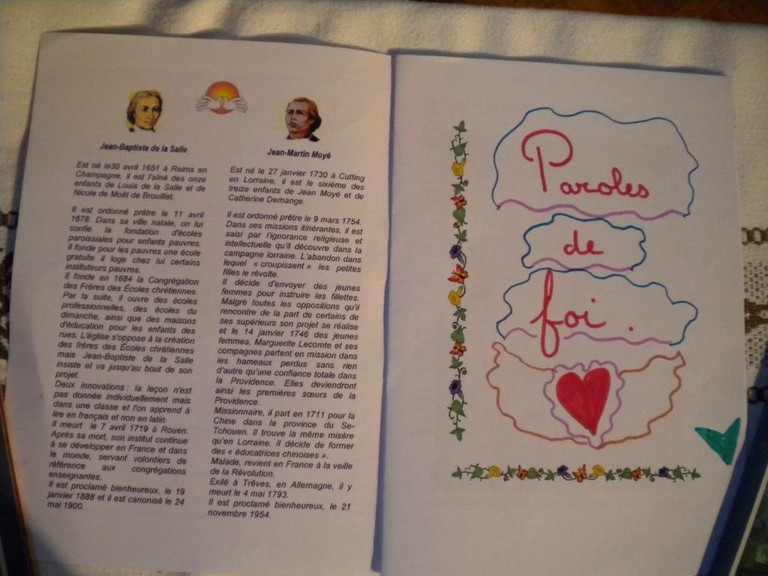 Jean-Baptiste de la Salle
Est né le30 avril 1651 à Reims en
Champagne, il est l'aîné des onze
enfants de Louis de la Salle et de
Nicole de Moët de Brouillet.
Il est ordonné prêtre le 11 avril
1678. Dans sa ville natale, on lui
confie la fondation d'écoles
paroissiales pour enfants pauvres.
Il fonde pour les pauvres une école
gratuite il loge chez lui certains
instituteurs pauvres.
Il fonde en 1684 la Congrégation
des Frères des Écoles chrétiennes.
Par la suite, il ouvre des écoles
professionnelles, des écoles du
dimanche, ainsi que des maisons
d'éducation pour les enfants des
rues. L'église s'oppose à la création
des frères des Écoles chrétiennes
mais Jean-Baptiste de la Salle
insiste et va jusqu'au bout de son
projet.
Deux innovations : la leçon n'est
pas donnée individuellement mais
dans une classe et l'on apprend à
lire en français et non en latin.
Il meurt le 7 avril 1719 à Rouen.
Après sa mort, son institut continue
à se développer en France et dans
le monde, servant volontiers de
référence aux congrégations
enseignantes.
Il est proclamé bienheureux, le 19
janvier 1888 et il est canonisé le 24
mai 1900.
Jean-Martin Moyé
Est né le 27 janvier 1730 à Cutting
en Lorraine, il est le sixième des
treize enfants de Jean Moyé et de
Catherine Demange.
Il est ordonné prêtre le 9 mars 1754.
Dans ses missions itinérantes, il est
saisi par l'ignorance religieuse et
intellectuelle qu'il découvre dans la
campagne lorraine. L'abandon dans
lequel « croupissent » les petites
filles le révolte.
Il décide d'envoyer des jeunes
femmes pour instruire les fillettes.
Malgré toutes les oppositions qu'il
rencontre de la part de certains de
ses supérieurs son projet se réalise
et le 14 janvier 1746 des jeunes
femmes, Marguerite Lecomte et ses
compagnes partent en mission dans
les hameaux perdus sans rien
d'autre qu'une confiance totale dans
la Providence. Elles deviendront
ainsi les premières sœurs de la
Providence.
Missionnaire, il part en 1711 pour la
Chine dans la province du Se-
Tchouen. Il trouve la même misère
qu'en Lorraine. Il décide de former
des « éducatrices chinoises ».
Malade, revient en France à la veille
de la Révolution.
Exilé à Trèves, en Allemagne, il y
meurt le 4 mai 1793.
Il est proclamé bienheureux, le 21
novembre 1954.
Paroles
de
foi.